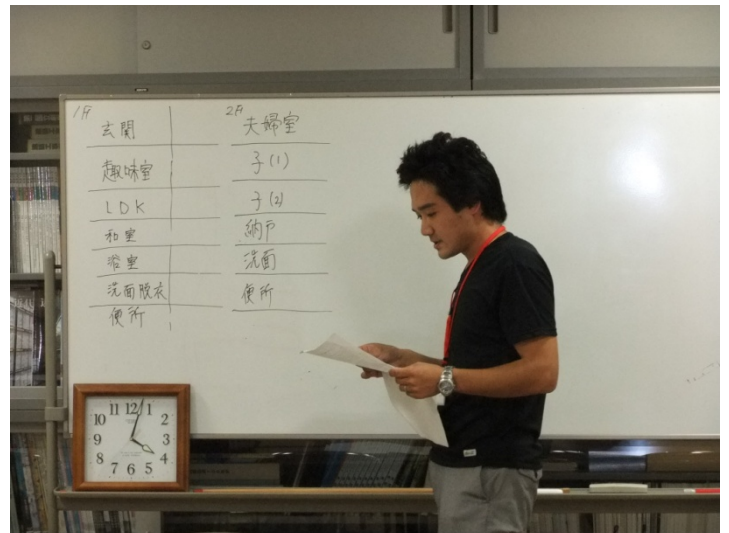 1F
玄関
趣味室
LDK
和室
浴室
洗面脱衣
便所
2F
夫婦室
子(1)
子(2)
納戸
洗面
便所
11 12 1
10 2
9 3
8 4
7 6 5